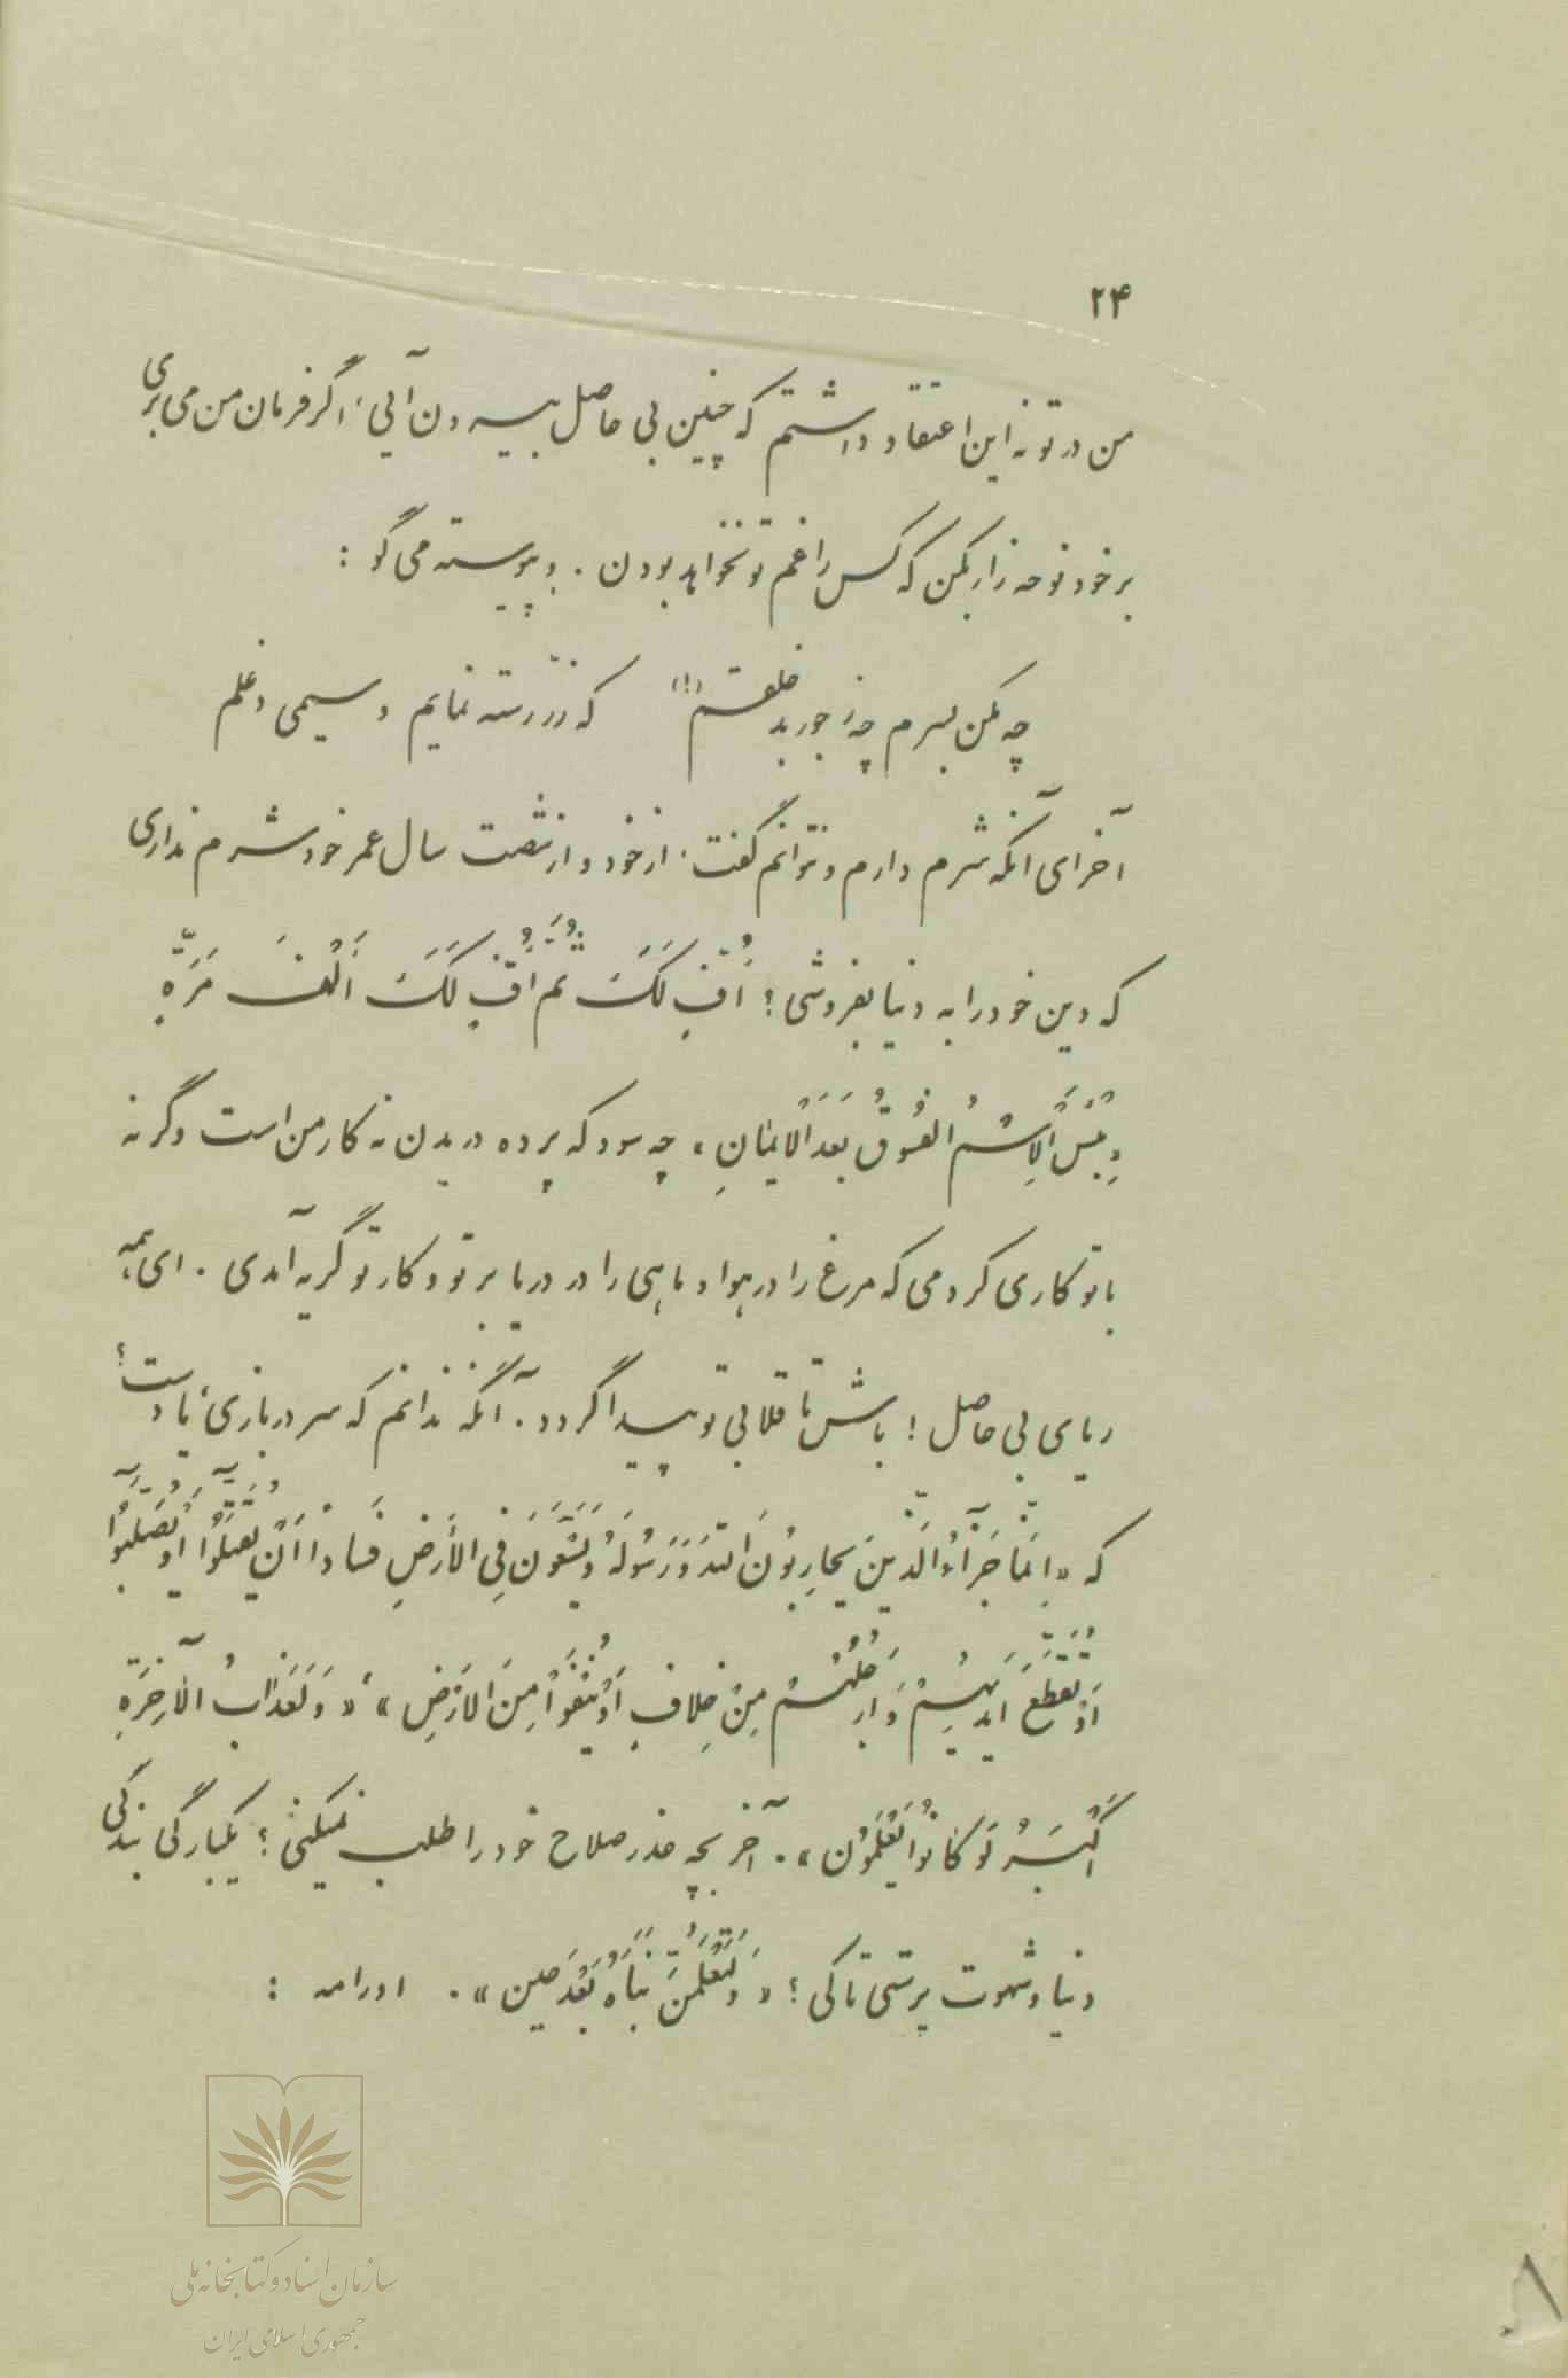 ۲۴
من در تو نه این اعتقاد داشتم که چنین بی حاصل بیرون آیی، اگر فرمان من می بری
بر خود نوحه زار بکن که کس را غم تو نخواهد بودن. و پیوسته می گو:
چه کنم بسرم چه ز جور بد خلقتم (!) که زر رسته نمایم و سیمی دغلم
آخر ای آنکه شرم دارم و نتوانم گفت، از خود و از شصت سال عمر خود شرم نداری
که دین خود را به دنیا بفروشی؟ اُفٍّ لَکَ ثُمَّ اُفٍّ لَکَ اَلْفَ مَرَّةٍ
وَ بِئْسَ الْاِسْمُ الْفُسُوقُ بَعْدَ الْایْمانِ، چه سود که پرده دریدن نه کار من است وگرنه
با تو کاری کردمی که مرغ را در هوا و ماهی را در دریا بر تو و کار تو گریه آمدی. ای همه
ریای بی حاصل! باش تا قلابی تو پیدا گردد. آنگه ندانم که سر در بازی یا دست؟
که «اِنَّما جَزآءُ الَّذینَ یُحارِبُونَ اللّهَ وَ رَسُولَهُ وَ یَسْعَوْنَ فِی الْأَرْضِ فَساداً اَنْ یُقَتَّلُوآ اَوْ یُصَلَّبُوآ
اَوْ تُقَطَّعَ اَیْدیهِمْ وَ اَرْجُلُهُمْ مِنْ خِلافٍ اَوْ یُنْفَوْا مِنَ الْاَرْضِ»، «وَ لَعَذابُ الْآخِرَةِ
اَکْبَرُ لَوْ کانُوا یَعْلَمُونَ». آخر بچه عذر صلاح خود را طلب نمیکنی؟ یکبارگی بندگی
دنیا و شهوت پرستی تا کی؟ «وَ لَتَعْلَمُنَّ نَبَأَهُ بَعْدَ حین». اورامه:
سازمان اسناد و کتابخانه ملی
جمهوری اسلامی ایران